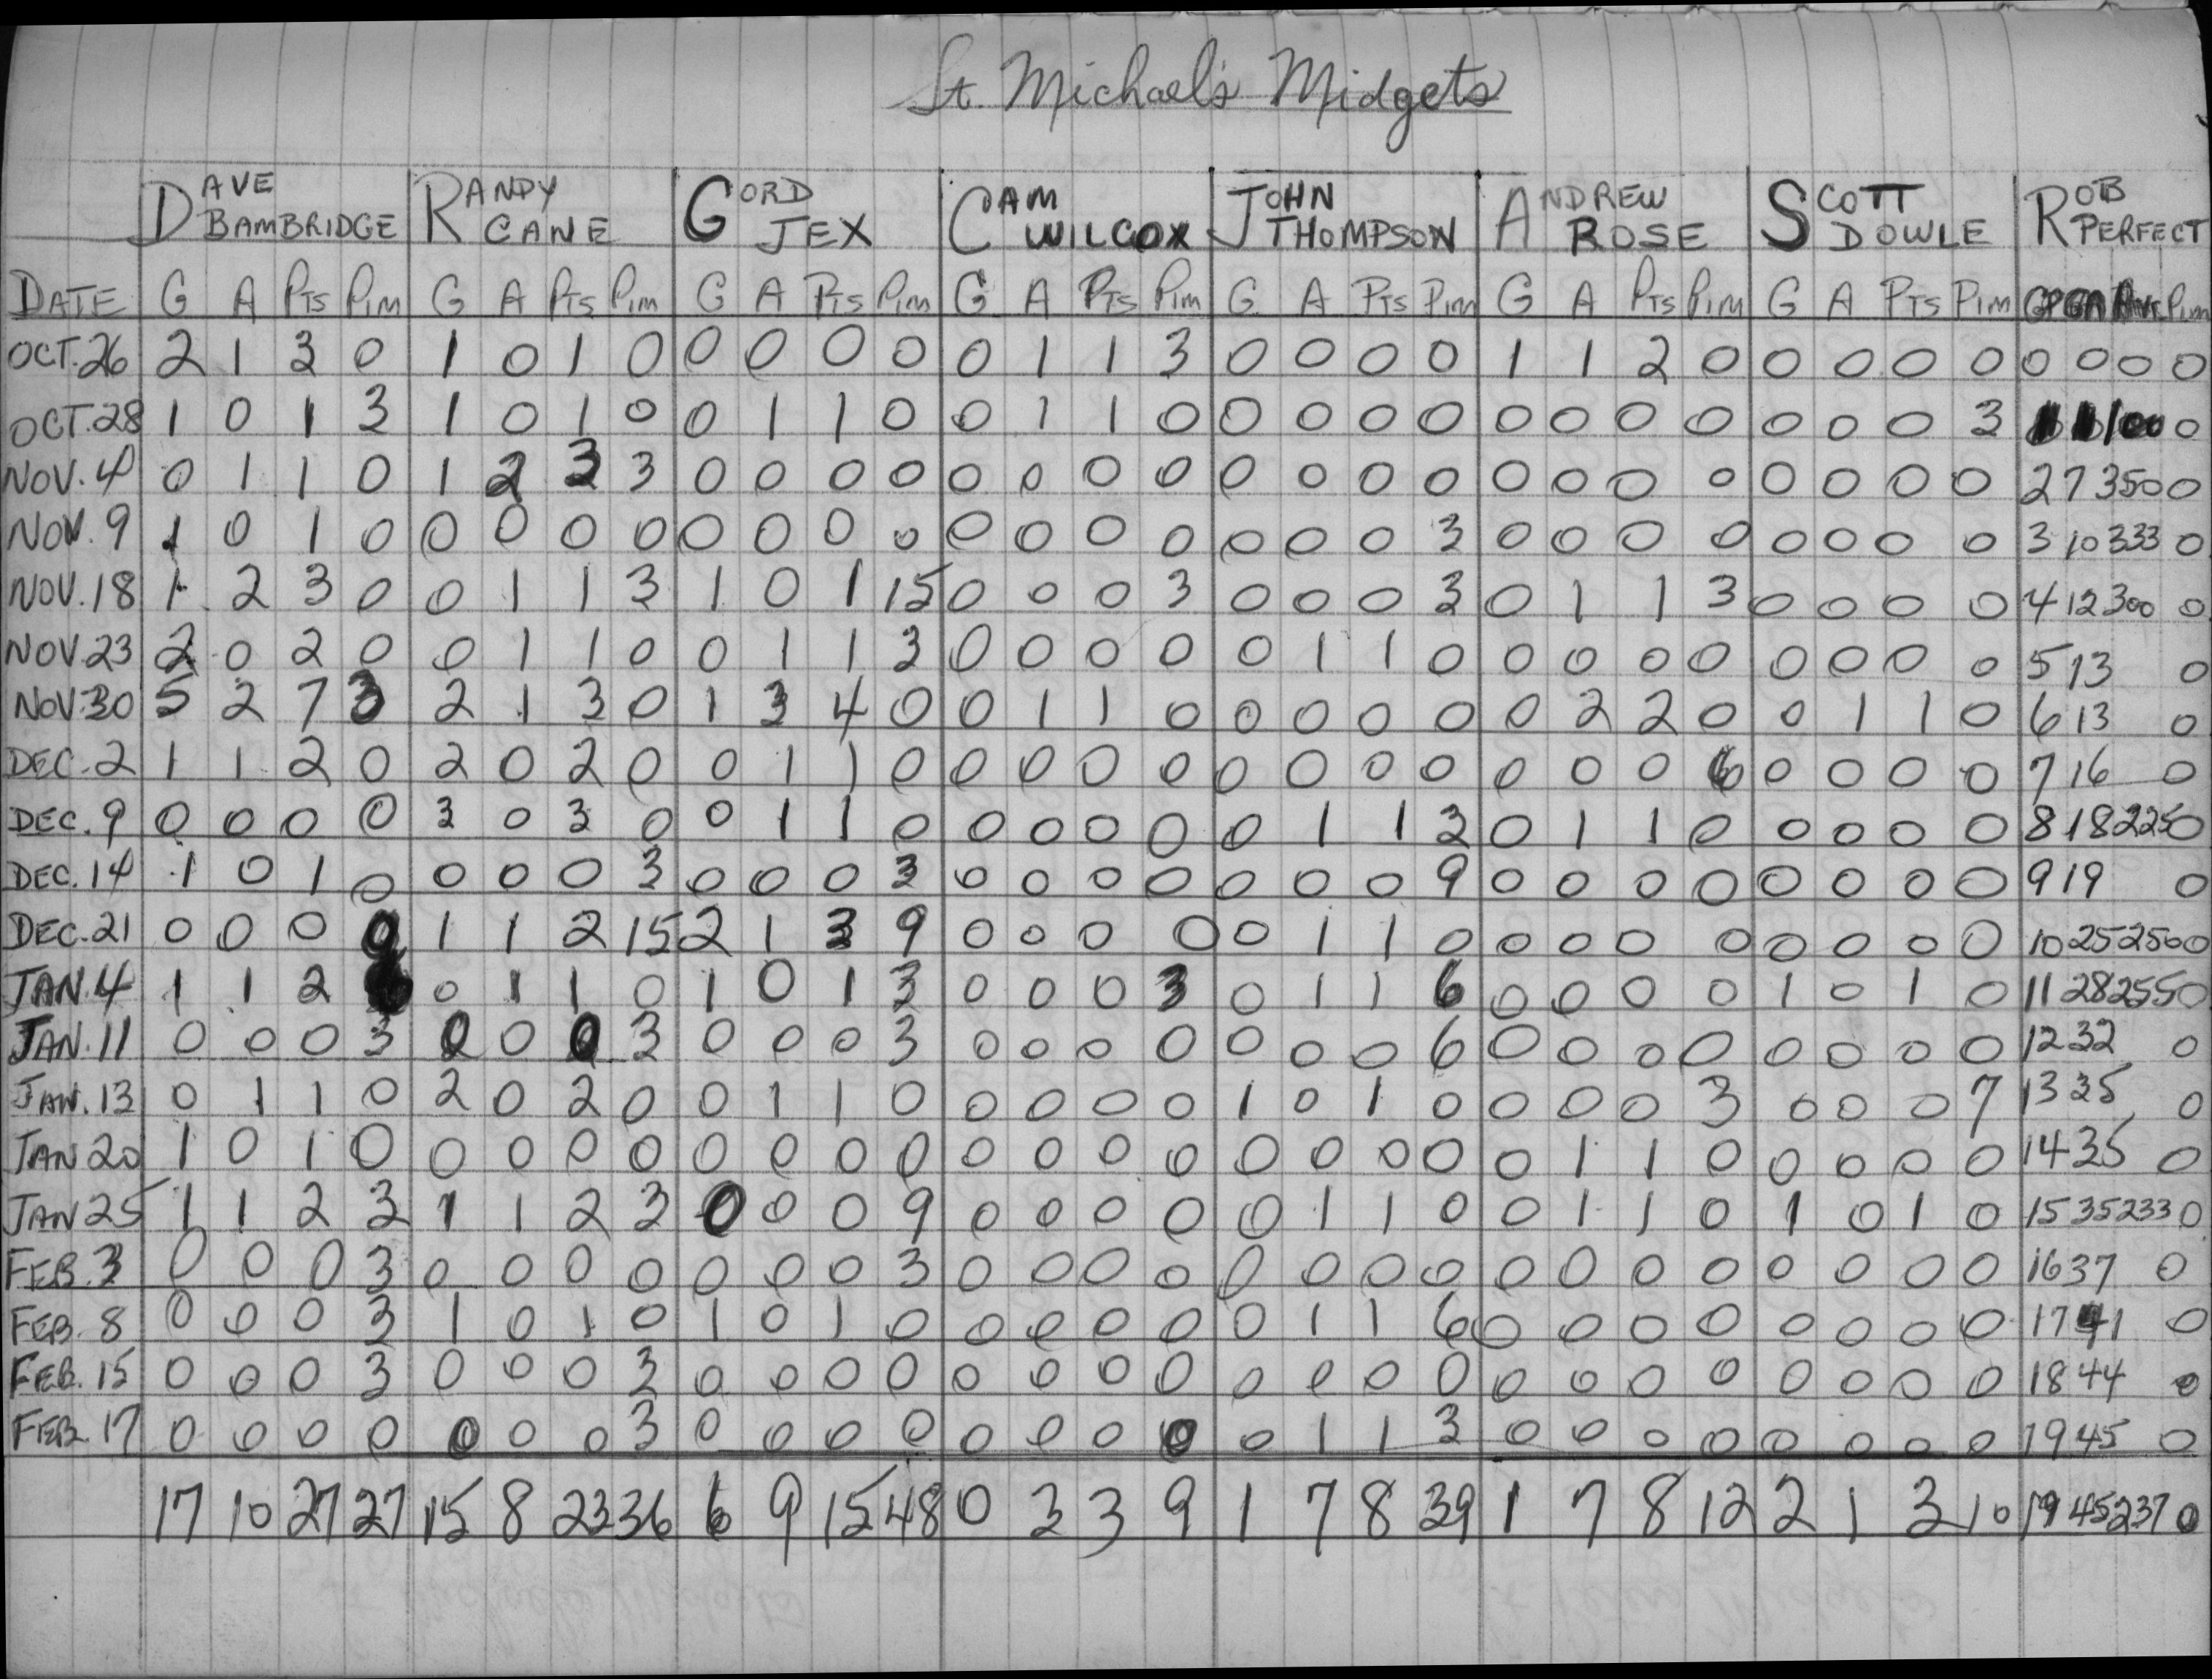 St. Michael's Midgets
DAVE BAMBRIDGE RANDY CANE GORD JEX CAM WILCOX JOHN THOMPSON ANDREW ROSE SCOTT DOWLE ROB PERFECT
DATE G A PTS PIM G A PTS PIM G A PTS PIM G A PTS PIM G A PTS PIM G A PTS PIM G A PTS PIM GP GA AVE PIM
OCT. 26 2 1 3 0 1 0 1 0 0 0 0 0 0 1 1 3 0 0 0 0 1 1 2 0 0 0 0 0 0 0 0 0
OCT. 28 1 0 1 3 1 0 1 0 0 1 1 0 0 1 1 0 0 0 0 0 0 0 0 0 0 0 0 3 0
NOV. 4 0 1 1 0 1 2 3 3 0 0 0 0 0 0 0 0 0 0 0 0 0 0 0 0 0 0 0 0 2 7 350 0
NOV. 9 1 0 1 0 0 0 0 0 0 0 0 0 0 0 0 0 0 0 0 3 0 0 0 0 0 0 0 0 3 10 333 0
NOV. 18 1 2 3 0 0 1 1 3 1 0 1 15 0 0 0 3 0 0 0 3 0 1 1 3 0 0 0 0 4 12 300 0
NOV. 23 2 0 2 0 0 1 1 0 0 1 1 3 0 0 0 0 0 1 1 0 0 0 0 0 0 0 0 0 5 13 0
NOV. 30 5 2 7 3 2 1 3 0 1 3 4 0 0 1 1 0 0 0 0 0 0 2 2 0 0 1 1 0 6 13 0
DEC. 2 1 1 2 0 2 0 2 0 0 1 1 0 0 0 0 0 0 0 0 0 0 0 0 6 0 0 0 0 7 16 0
DEC. 9 0 0 0 0 3 0 3 0 0 1 1 0 0 0 0 0 0 1 1 3 0 1 1 0 0 0 0 0 8 18 225 0
DEC. 14 1 0 1 0 0 0 0 3 0 0 0 3 0 0 0 0 0 0 0 9 0 0 0 0 0 0 0 0 9 19 0
DEC. 21 0 0 0 0 1 1 2 15 2 1 3 9 0 0 0 0 0 1 1 0 0 0 0 0 0 0 0 0 10 25 250 0
JAN. 4 1 1 2 0 1 1 0 1 0 1 3 0 0 0 3 0 1 1 6 0 0 0 0 1 0 1 0 11 28 255 0
JAN. 11 0 0 0 3 0 0 0 3 0 0 0 3 0 0 0 0 0 0 0 6 0 0 0 0 0 0 0 0 12 32 0
JAN. 13 0 1 1 0 2 0 2 0 0 1 1 0 0 0 0 0 1 0 1 0 0 0 0 3 0 0 0 7 13 35 0
JAN 20 1 0 1 0 0 0 0 0 0 0 0 0 0 0 0 0 0 0 0 0 0 1 1 0 0 0 0 0 14 35 0
JAN 25 1 1 2 3 1 1 2 3 0 0 0 9 0 0 0 0 0 1 1 0 0 1 1 0 1 0 1 0 15 35 233 0
FEB. 3 0 0 0 3 0 0 0 0 0 0 0 3 0 0 0 0 0 0 0 0 0 0 0 0 0 0 0 0 16 37 0
FEB. 8 0 0 0 3 1 0 1 0 1 0 1 0 0 0 0 0 0 1 1 6 0 0 0 0 0 0 0 0 17 41 0
FEB. 15 0 0 0 3 0 0 0 3 0 0 0 0 0 0 0 0 0 0 0 0 0 0 0 0 0 0 0 0 18 44 0
FEB. 17 0 0 0 0 0 0 0 3 0 0 0 0 0 0 0 0 0 1 1 3 0 0 0 0 0 0 0 0 19 45 0
17 10 27 27 15 8 23 36 6 9 15 48 0 3 3 9 1 7 8 39 1 7 8 12 2 1 3 10 19 45 237 0